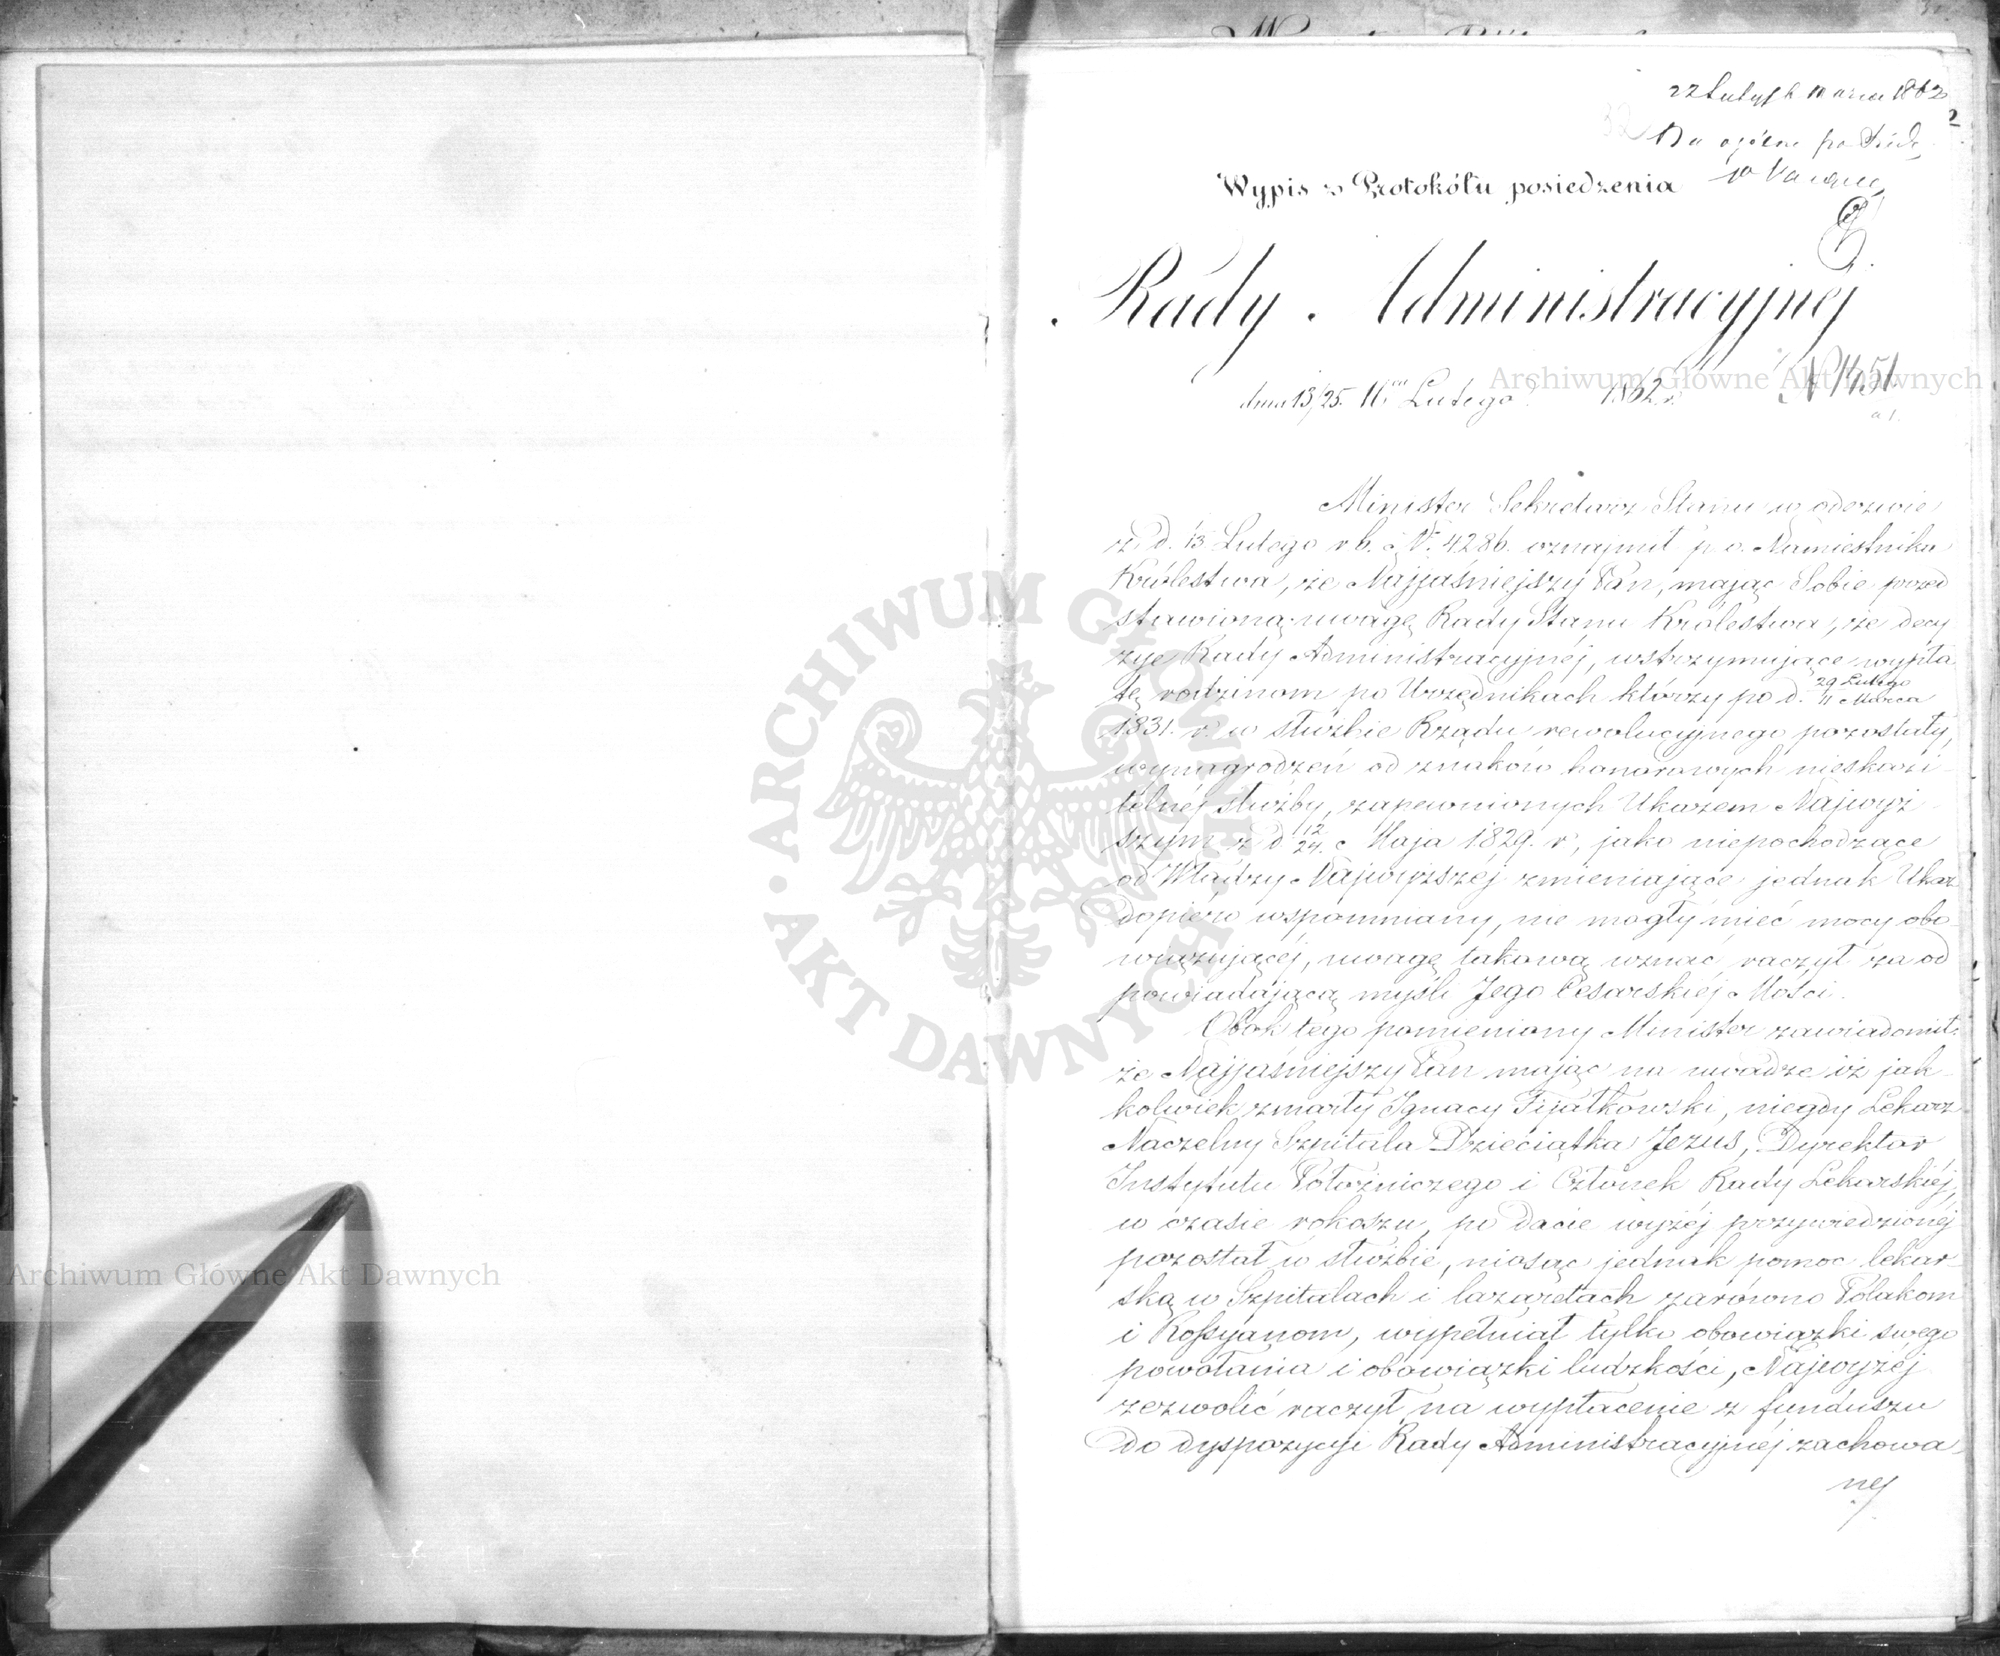 22 Lutego
Marca 1862
2
Na ogólne
Wypis z Protokółu posiedzenia
Rady Administracyjnej
dnia 13/25. Lutego 1862 r.
Minister Sekretarz Stanu w odezwie
z d. 13 Lutego r b. N. 4286. oznajmił p. o. Namiestnika
Królestwa, że Najjaśniejszy Pan, mając Sobie przed
stawioną uwagę Rady Stanu Królestwa, że decy
zye Rady Administracyjnéj, wstrzymujące wypła
tę rodzinom po Urzędnikach którzy po d. 29 Lutego
11 Marca
1831. r. w służbie Rządu rewolucyjnego pozostały,
wynagrodzeń od znaków honorowych nieskazi
telnéj służby, zapewnionych Ukazem Najwyż
szym z d 12/24. Maja 1829. r, jako niepochodzące
od Władzy Najwyższéj zmieniające jednak Ukaz
dopiéro wspomniany, nie mogły mieć mocy obo
wiązującéj, uwagę takową uznać raczył za od
powiadającą myśli Jego Cesarskiéj Mości.
Obok tego pomieniony Minister zawiadomił,
że Najjaśniejszy Pan mając na uwadze iż jak-
kolwiek zmarły Ignacy Fijałkowski, niegdy Lekarz
Naczelny Szpitala Dzieciątka Jezus, Dyrektor
Instytutu Położniczego i Członek Rady Lekarskiéj,
w czasie rokoszu, po dacie wyżéj przywiedzionéj
pozostał w służbie, niosąc jednak pomoc lekar-
ską w Szpitalach i lazaretach zarówno Polakom
i Rossyanom, wypełniał tylko obowiązki swego
powołania i obowiązki ludzkości, Najwyżéj
zezwolić raczył na wypłacenie z funduszu
do dyspozycyi Rady Administracyjnéj zachowa,
nej
Archiwum Główne Akt Dawnych
Archiwum Główne Akt Dawnych
· ARCHIWUM GŁÓWNE · AKT DAWNYCH